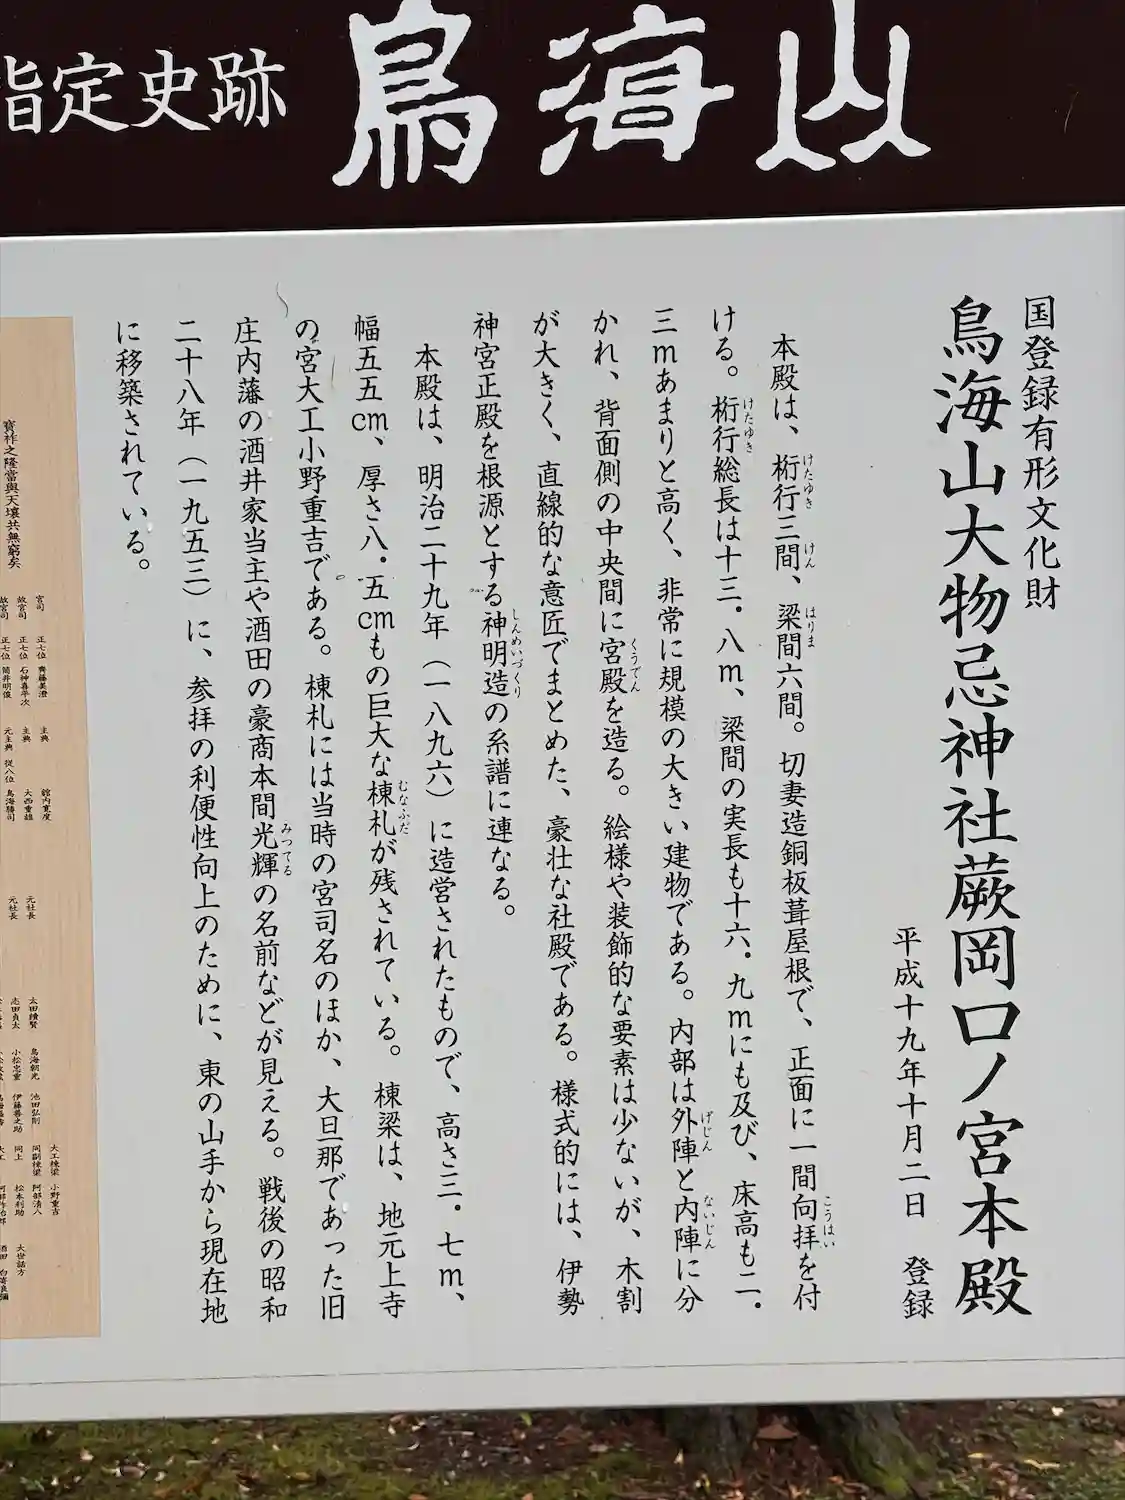 指定史跡 鳥海山
国登録有形文化財
鳥海山大物忌神社蕨岡口ノ宮本殿
平成十九年十月二日 登録
本殿は、桁行三間、梁間六間。切妻造銅板葺屋根で、正面に一間向拝を付
ける。桁行総長は十三・八m、梁間の実長も十六・九mにも及び、床高も二・
三mあまりと高く、非常に規模の大きい建物である。内部は外陣と内陣に分
かれ、背面側の中央間に宮殿を造る。絵様や装飾的な要素は少ないが、木割
が大きく、直線的な意匠でまとめた、豪壮な社殿である。様式的には、伊勢
神宮正殿を根源とする神明造の系譜に連なる。
本殿は、明治二十九年(一八九六)に造営されたもので、高さ三・七m、
幅五五cm、厚さ八・五cmもの巨大な棟札が残されている。棟梁は、地元上寺
の宮大工小野重吉である。棟札には当時の宮司名のほか、大旦那であった旧
庄内藩の酒井家当主や酒田の豪商本間光輝の名前などが見える。戦後の昭和
二十八年(一九五三)に、参拝の利便性向上のために、東の山手から現在地
に移築されている。
大工棟梁 小野重吉
宮司 正七位 齊藤美澄 主典 元社長 太田積賢 鳥海朝光 池田弘剛 同副棟梁 阿部清八
故宮司 正七位 石神喜平次 主典 大西重雄 元社長 志田貞太 小松忠重 伊藤善之助 同上 松本利助 大世話方
寳祚之隆當與天壤共無窮矣